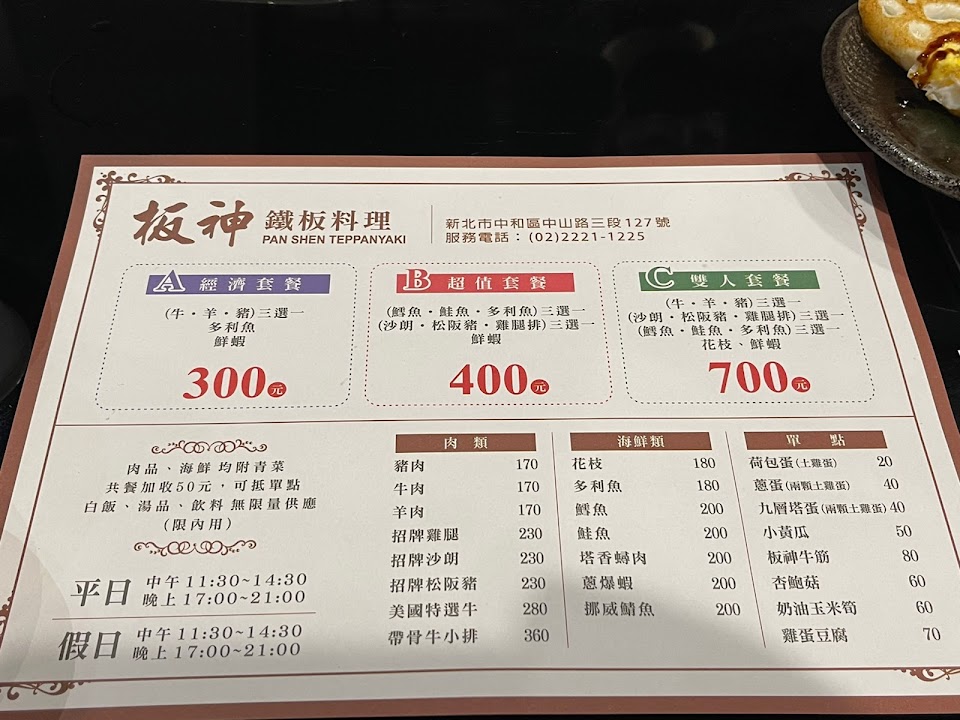 板神 鐵板料理
PAN SHEN TEPPANYAKI
新北市中和區中山路三段127號
服務電話：(02)2221-1225
A 經濟套餐
(牛・羊・豬)三選一
多利魚
鮮蝦
300元
B 超值套餐
(鱈魚・鮭魚・多利魚)三選一
(沙朗・松阪豬・雞腿排)三選一
鮮蝦
400元
C 雙人套餐
(牛・羊・豬)三選一
(沙朗・松阪豬・雞腿排)三選一
(鱈魚・鮭魚・多利魚)三選一
花枝、鮮蝦
700元
肉品、海鮮 均附青菜
共餐加收50元，可抵單點
白飯、湯品、飲料 無限量供應
(限內用)
平日 中午11:30~14:30
晚上17:00~21:00
假日 中午11:30~14:30
晚上17:00~21:00
肉類
豬肉 170
牛肉 170
羊肉 170
招牌雞腿 230
招牌沙朗 230
招牌松阪豬 230
美國特選牛 280
帶骨牛小排 360
海鮮類
花枝 180
多利魚 180
鱈魚 200
鮭魚 200
塔香蟳肉 200
蔥爆蝦 200
挪威鯖魚 200
單點
荷包蛋(土雞蛋) 20
蔥蛋(兩顆土雞蛋) 40
九層塔蛋(兩顆土雞蛋) 40
小黃瓜 50
板神牛筋 80
杏鮑菇 60
奶油玉米筍 60
雞蛋豆腐 70